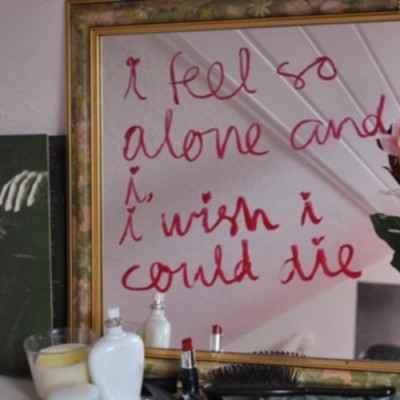 i feel so
alone and
i,
i wish i
could die